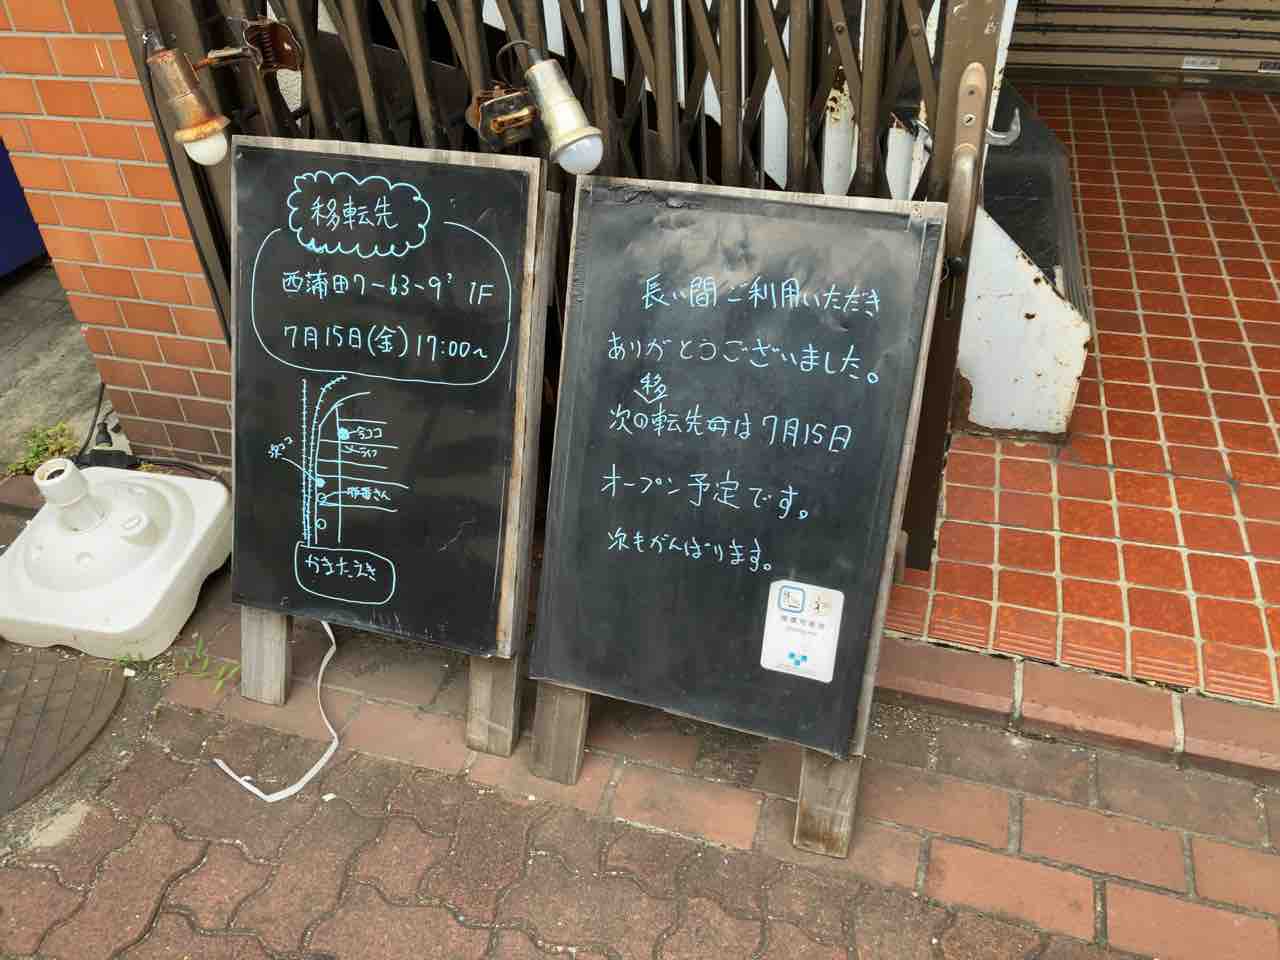 移転先
西蒲田7-63-9 1F
7月15日(金)17:00〜
今ココ
ライフ
かまたえき
長い間ご利用いただき
ありがとうございました。
移
次の転先は7月15日
オープン予定です。
次もがんばります。
喫煙可能店